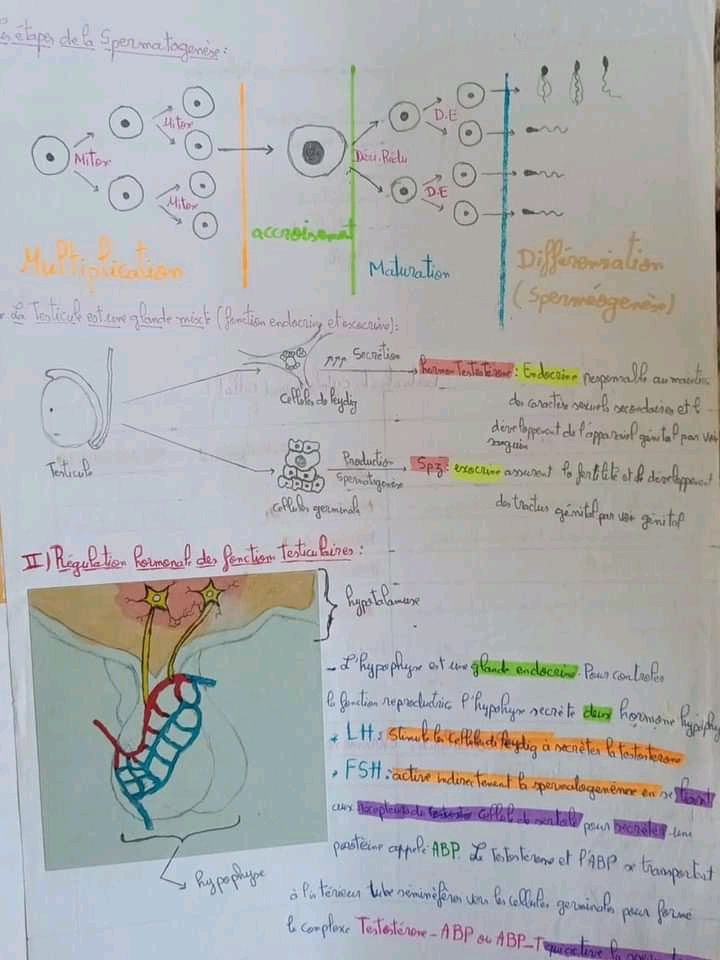 Les étapes de la Spermatogenèse :
Mitox
Mitox
Mitox
Déci. Rédu
D.E
D.E
Multiplication
accroisemat
Maturation
Différenciation
(Sperméogenèse)
La Testicule est une glande mixte (fonction endocrine et exocrine) :
Testicule
Cellules de leydig
↗↗↗ Secrétion
hormon Testostérone : Endocrine responsable au maintien
des caractère sexuels secondaires et le
développement de l'appareil génital par voie
sanguin
cellules germinale
Production
spermatogenèse
Spz : exocrine assurent la fertilité et le développement
des tractus génital par voie génital
II) Régulation hormonale des fonction testiculaires :
hypotalamuse
hypophyse
- L'hypophyse est une glande endocrine. Pour contrôler
la fonction reproductrice l'hypohyse secrète deux hormone hypophy
* LH : stimule les cellules de leydig à secrèter la testosterone
* FSH : active indirectement la spermatogenèse en se fixant
aux recepteurs de cellule de sertole pour secrèter une
protéine appelé ABP. La Testostérone et l'ABP se transportent
à l'intérieur tube séminifères vers les cellules germinales pour formé
le complexe Testostérone - ABP ou ABP_T qui active la